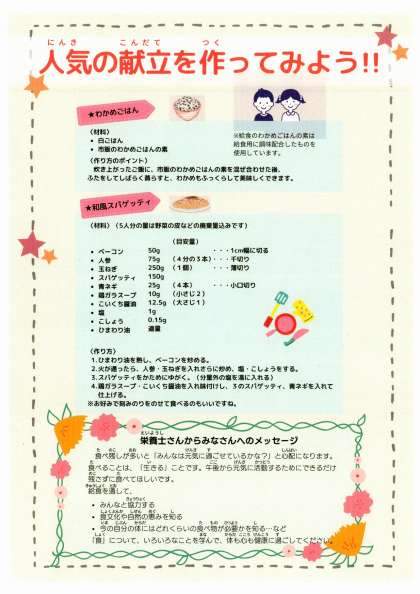 にんき こんだて つく
人気の献立を作ってみよう!!
★わかめごはん
（材料）
• 白ごはん
• 市販のわかめごはんの素
※給食のわかめごはんの素は
給食用に調味配合したものを
使用しています。
（作り方のポイント）
炊き上がったご飯に、市販のわかめごはんの素を混ぜ合わせた後、
ふたをしてしばらく蒸らすと、わかめもふっくらして美味しくできます。
★和風スパゲッティ
（材料）（5人分の量は野菜の皮などの廃棄量込みです）
（目安量）
• ベーコン 50g ・・・1cm幅に切る
• 人参 75g （４分の３本）・・・千切り
• 玉ねぎ 250g （１個） ・・・薄切り
• スパゲッティ 150g
• 青ネギ 25g （４本） ・・・小口切り
• 鶏ガラスープ 10g （小さじ２）
• こいくち醤油 12.5g （大さじ１）
• 塩 1g
• こしょう 0.15g
• ひまわり油 適量
（作り方）
1.ひまわり油を熱し、ベーコンを炒める。
2.火が通ったら、人参・玉ねぎを入れさらに炒め、塩・こしょうをする。
3.スパゲッティをかためにゆがく。（分量外の塩を湯に入れる）
4.鶏ガラスープ・こいくち醤油を入れ味付けし、３のスパゲッティ、青ネギを入れて
仕上げる。
※お好みで刻みのりをのせて食べるのもいいですね。
えいようし
栄養士さんからみなさんへのメッセージ
食べ残しが多いと「みんなは元気に過ごせているかな？」と心配になります。
食べることは、「生きる」ことです。午後から元気に活動するためにできるだけ
残さずに食べてほしいです。
給食を通して、
• みんなと協力する
• 食文化や自然の恵みを知る
• 今の自分の体にはどれくらいの食べ物が必要かを知る…など
「食」について、いろいろなことを学んで、体も心も健康に過ごしてください。